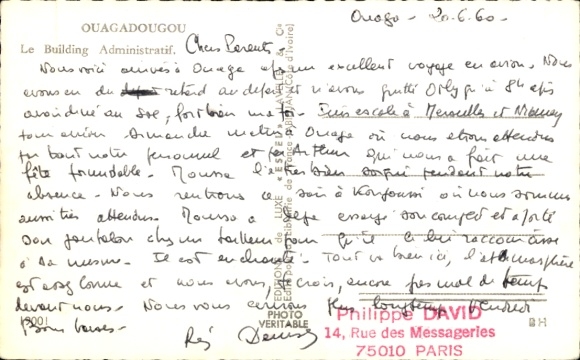 OUAGADOUGOU
Le Building Administratif.
Ouaga - 20-6-60-
Chers Parents,
Nous voici arrivés à Ouaga après un excellent voyage en avion. Nous
avons eu du retard au départ et n'avons quitté Orly qu'à 8h après
avoir dîné au fort bien ma foi. Puis escale à Marseille et Niamey
Dimanche matin Ouaga où nous étions attendus
par tout notre personnel et Arthur qui nous a fait une
fête formidable. Moussa l'a très bien soigné pendant notre
absence. Nous rentrons ce soir à Kongoussi où nous sommes
aussi très attendus. Moussa a essayé son complet et a porté
son pantalon chez un tailleur pour qu'il le lui raccourcisse
à sa mesure. Il est enchanté. Tout va bien ici, l'atmosphère
est assez bonne et nous avons, je crois, encore pas mal de temps
devant nous. Nous vous écrirons plus longtemps
Bons baisers.
Denise
3001
EDITIONS de LUXE « ESTEL » LAVELLE & Cie
PHOTO
VERITABLE
BH
Philippe DAVID
14, Rue des Messageries
75010 PARIS